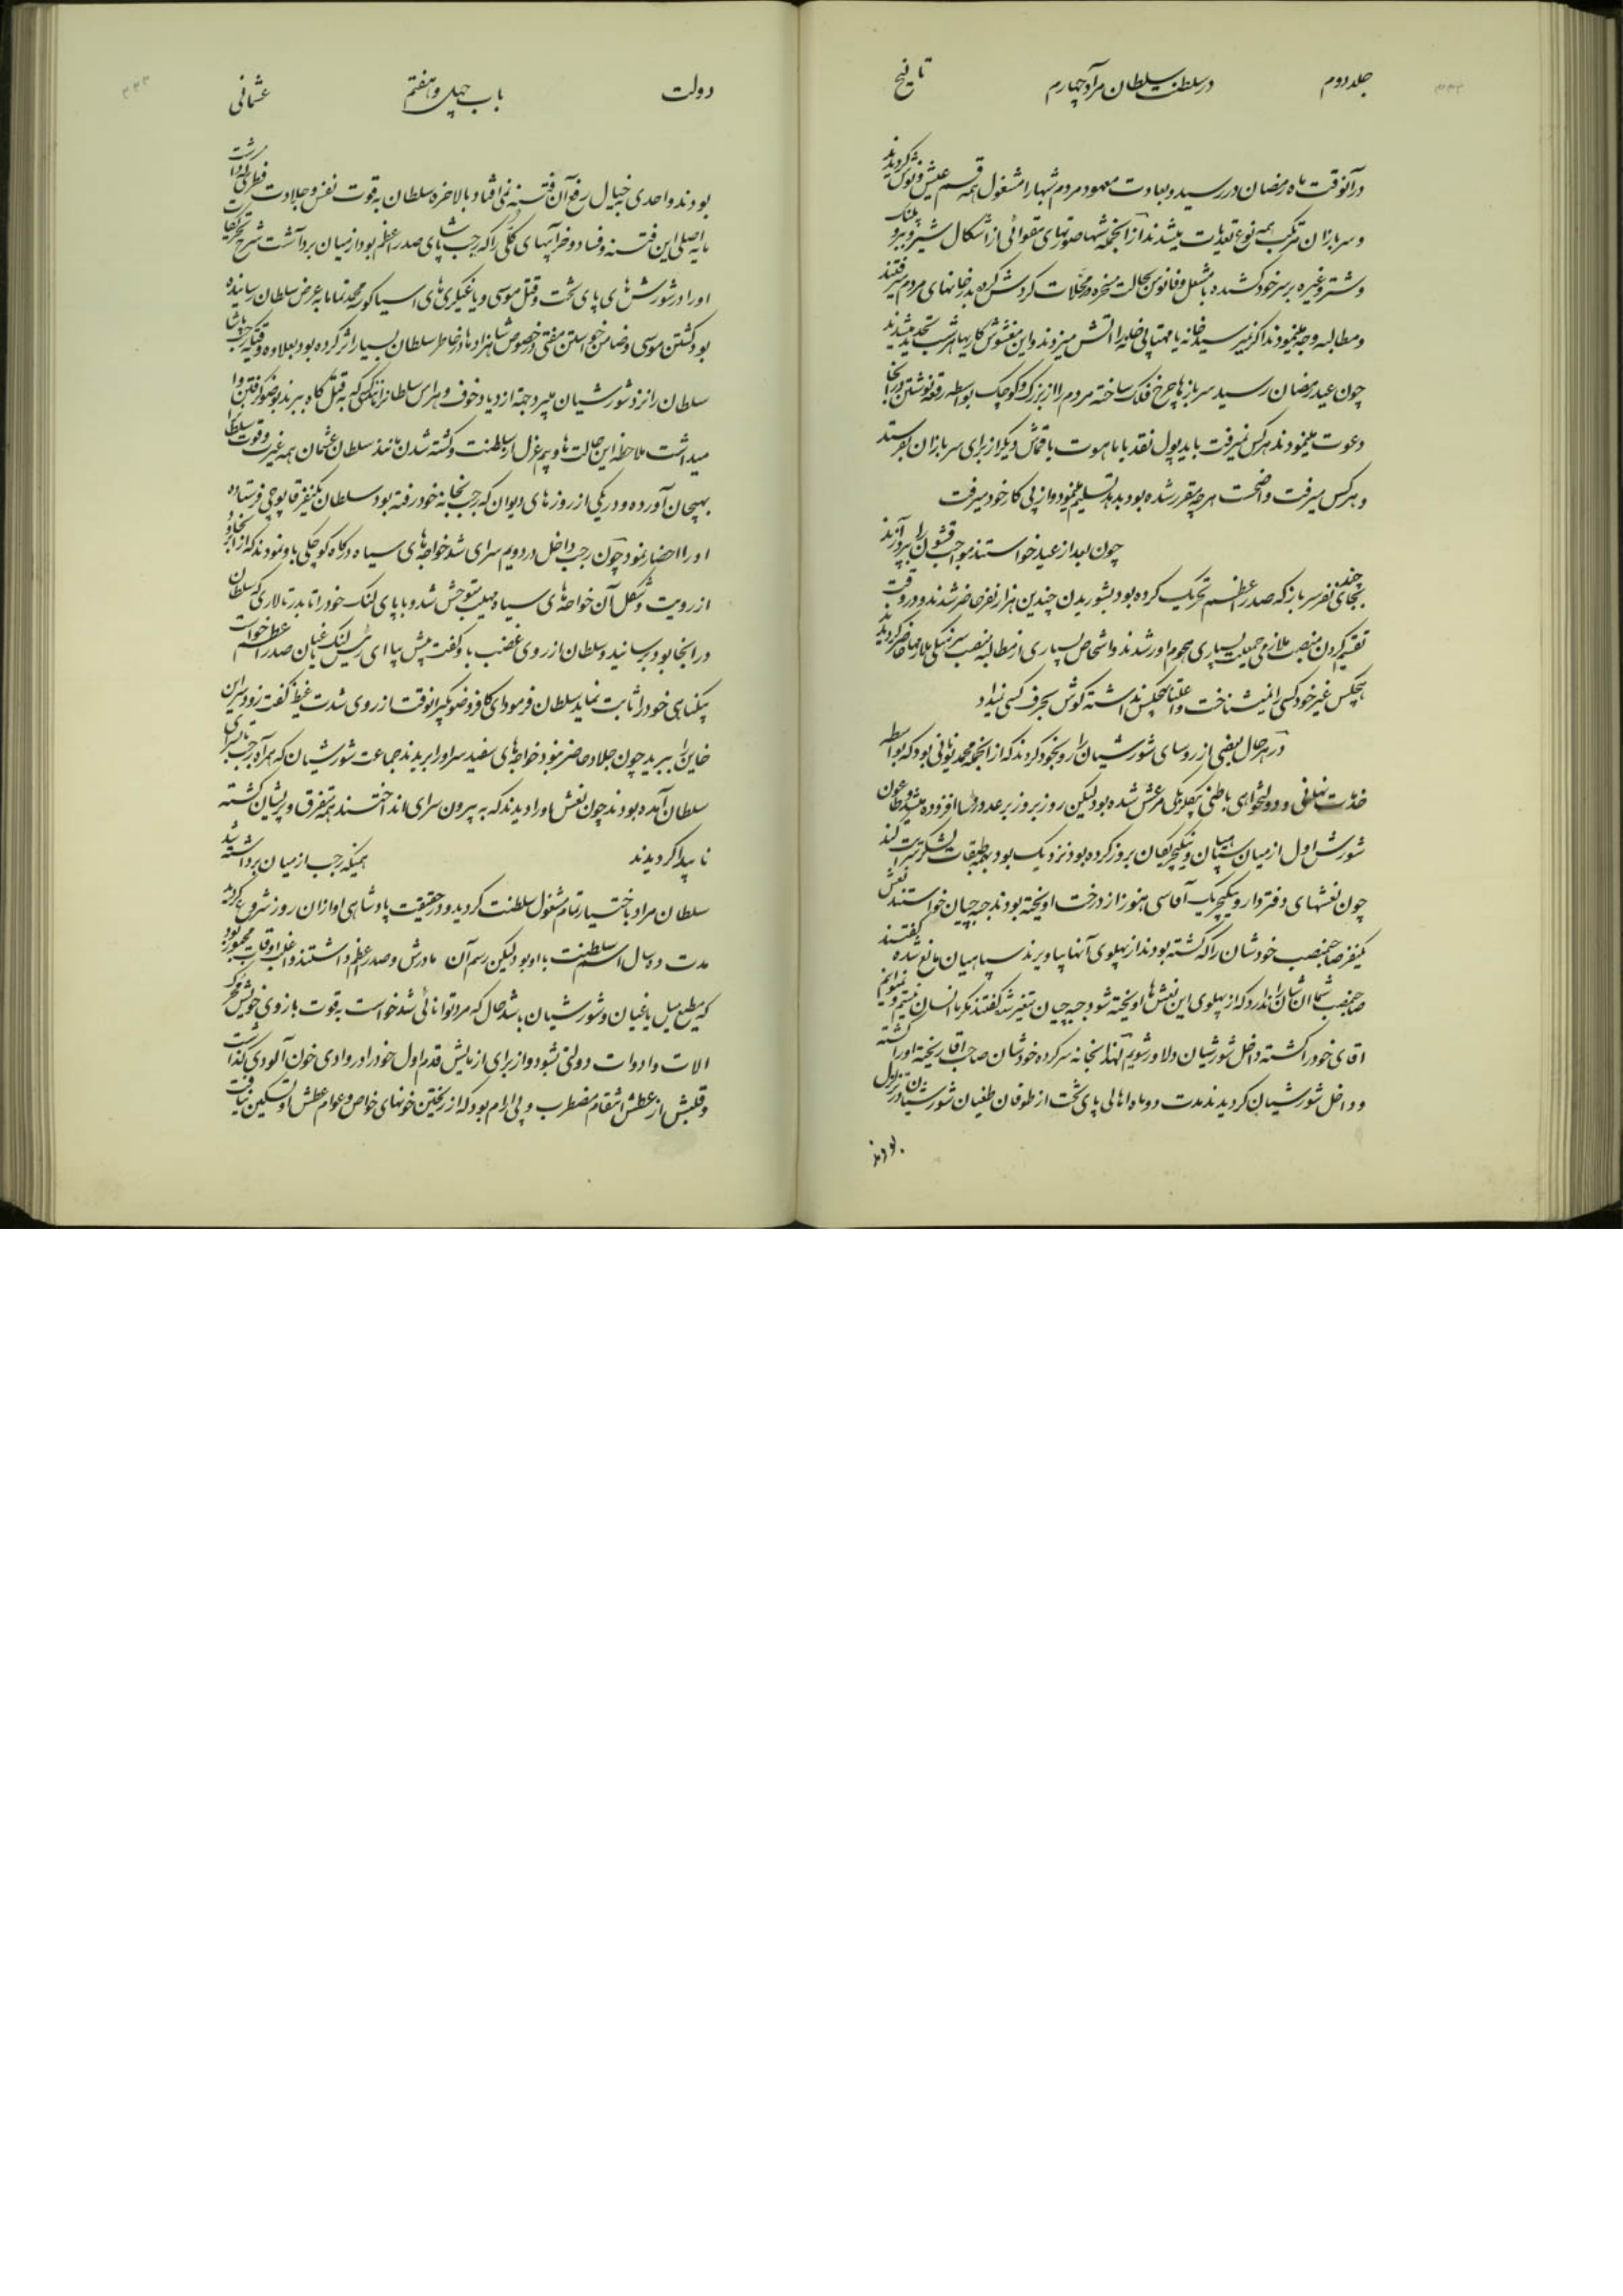 جلد دوم
در سلطنت سلطان مراد چهارم
تاریخ
در آنوقت ماه رمضان در رسید و بعادت معهود مردم شبها را مشغول همه قسم عیش و نوش کردیدند
و سربازان مرتکب همه نوع تعدیات میشدند از آنجمله شبها صورتهای مقوائی از اشکال شیر و ببر و پلنک
و شتر و غیره بر سر خود کشیده با مشعل و فانوس بحالت مسخره در محلات کردش کرده بدر خانهای مردم میرفتند
و مطالبه وجه مینمودند اکر نمیرسید خانه یا مهتابی خانه را اتش میزدند و این مغشوش کاریها هر شب تجدید میشدند
چون عید رمضان رسید سربازها چرخ فلک ساخته مردم را از بزرک و کوچک بواسطه رقعه نوشتن در آنجا
دعوت مینمودند هرکس نمیرفت باید پول نقد یا ماهوت یا قماش دیکر از برای سربازان بفرستد
و هرکس میرفت واضحست هرچه مقرر شده بود بدهد تسلیم مینمود و از پی کار خود میرفت
چون بعد از عید خواستند مواجب قشون را بپردازند
بجای چند نفر سرباز که صدر اعظم تحریک کرده بود بشوریدن چندین هزار نفر حاضر شدند و در وقت
تقسیم کردن منصب ملازمی جمعیت بسیاری هجوم اور شدند و اشخاص بسیاری از مطالبه منصب
هیچکس غیر خود کسی را نمیشناخت و اعتنا بهیچکس نداشته کوش بحرف کسی نمیداد
در هر حال بعضی از روسای شورشیان را رو بخود کردند که از آنجمله محمد یونانی بود که بواسطه
خدمات و دولتخواهی باطنی بیکلربیکی مرعش شده بود لیکن روز بروز بر عدد روسا افزوده میشد
شورش اول از میان سپاهیان و ینکیچریکان بروز کرده بود نزدیک بود بهمه طبقات لشکر سرایت کند
چون نعشهای دفتردار و ینکیچریک آقاسی هنوز از درخت اویخته بودند جبه چیان خواستند نعش
یکنفر صاحبمنصب خودشان را که کشته بودند از پهلوی آنها بیاویزند سپاهیان مانع شده کفتند
صاحبمنصب شما آن شان را ندارد که از پهلوی این نعش ها اویخته شود جبه چیان متغیر شده کفتند مکر ما انسان نیستیم و نمیتوانیم
اقای خود را کشته داخل شورشیان دلاور شویم لهذا بخانه سرکرده خودشان صاحب آقا ریخته او را کشته
و داخل شورشیان کردیدند مدت دو ماه اهالی پای تخت از طوفان طغیان شورشیان در تزلزل
بودند
دولت
باب چهل و هفتم
عثمانی
بودند و احدی بخیال رفع آن فتنه نمی افتاد بالاخره سلطان بقوت نفس و جلادت فطری که داشت
مایه اصلی این فتنه و فساد و خرابیهای کلی را که رجب پاشای صدر اعظم بود از میان برداشت شرح تحریکات
او را در شورش های پای تخت و قتل موسی و یاغیکری های الیاس کور محمد تماما بعرض سلطان رسانیده
بود کشتن موسی و ضامن خواستن مفتی در خصوص شاهزاده ها در خاطر سلطان بسیار اثر کرده بود بعلاوه وقتیکه رجب پاشا
سلطان را نزد شورشیان میبرد بجهة ازدیاد خوف و هراس سلطان
میداشت ملاحظه این حالت ها و بیم عزل از سلطنت و کشته شدن مانند سلطان عثمان همه غیرت و قوت سلطانرا
بهیجان آورده و در یکی از روزهای دیوان که رجب بخانه خود رفته بود سلطان یکنفر قاپوچی فرستاده
او را احضار نمود چون رجب داخل در دویم سرای شد خواجه های سیاه درکاه کوچکی باو نمودند که از آنجا
از رویت و شکل آن خواجه های سیاه مهیب متوحش شد و با پای لنک خود را تا بدر تالاری که سلطان
در انجا بود برسانید و سلطان از روی غضب باو کفت پیش بیا ای رئیس لنک یاغیان صدر اعظم خواست
بیکناهی خود را ثابت نماید سلطان فرمود ای کافر وضو بکیر انوقت از روی شدت غیظ کفت زود سر این
خاین را ببرید چون جلاد حاضر نبود خواجه های سفید سر او را بریدند جماعت شورشیان که همراه رجب تا سرای
سلطان آمده بودند چون نعش او را دیدند که به بیرون سرای انداختند همه متفرق و پریشان کشته
ناپیدا کردیدند
همینکه رجب از میان برداشته شد
سلطان مراد باختیار تمام مشغول سلطنت کردید و در حقیقت پادشاهی او از ان روز شروع کردید
مدت ده سال اسم سلطنت با او بود لیکن رسم آن مادرش و صدر اعظم داشتند و اغلب اوقات مجبور بود
که مطیع میل یاغیان و شورشیان باشد حال که مرد توانائی شد خواست بقوت بازوی خویش محرک
الات و ادوات دولتی بشود و از برای ازمایش قدم اول خود را در وادی خون آلودی کذاشت
و قلبش از عطش انتقام مضطرب و بی ارام بود که از ریختن خونهای خواص و عوام عطش او تسکین نیافت